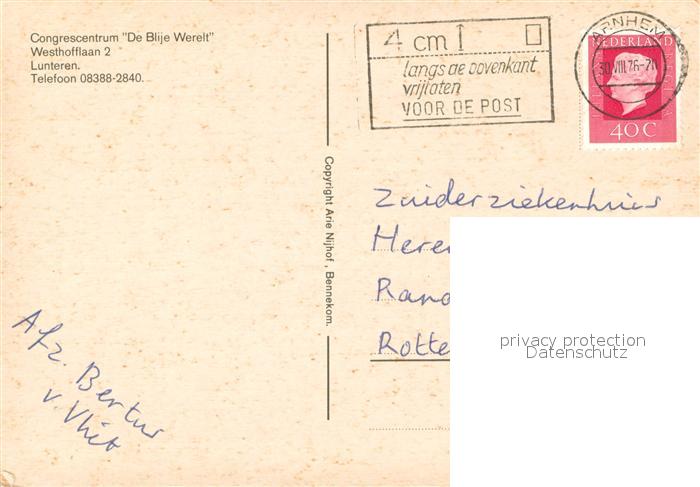 Congrescentrum "De Blije Werelt"
Westhofflaan 2
Lunteren.
Telefoon 08388-2840.
4 cm
langs de bovenkant
vrijlaten
VOOR DE POST
ARNHEM
30.VIII.76-20
NEDERLAND
40C
Copyright Arie Nijhof, Bennekom.
Zuiderziekenhuis
Heren
Rand
Rotte
privacy protection
Datenschutz
Afz. Bertus
v. Vliet